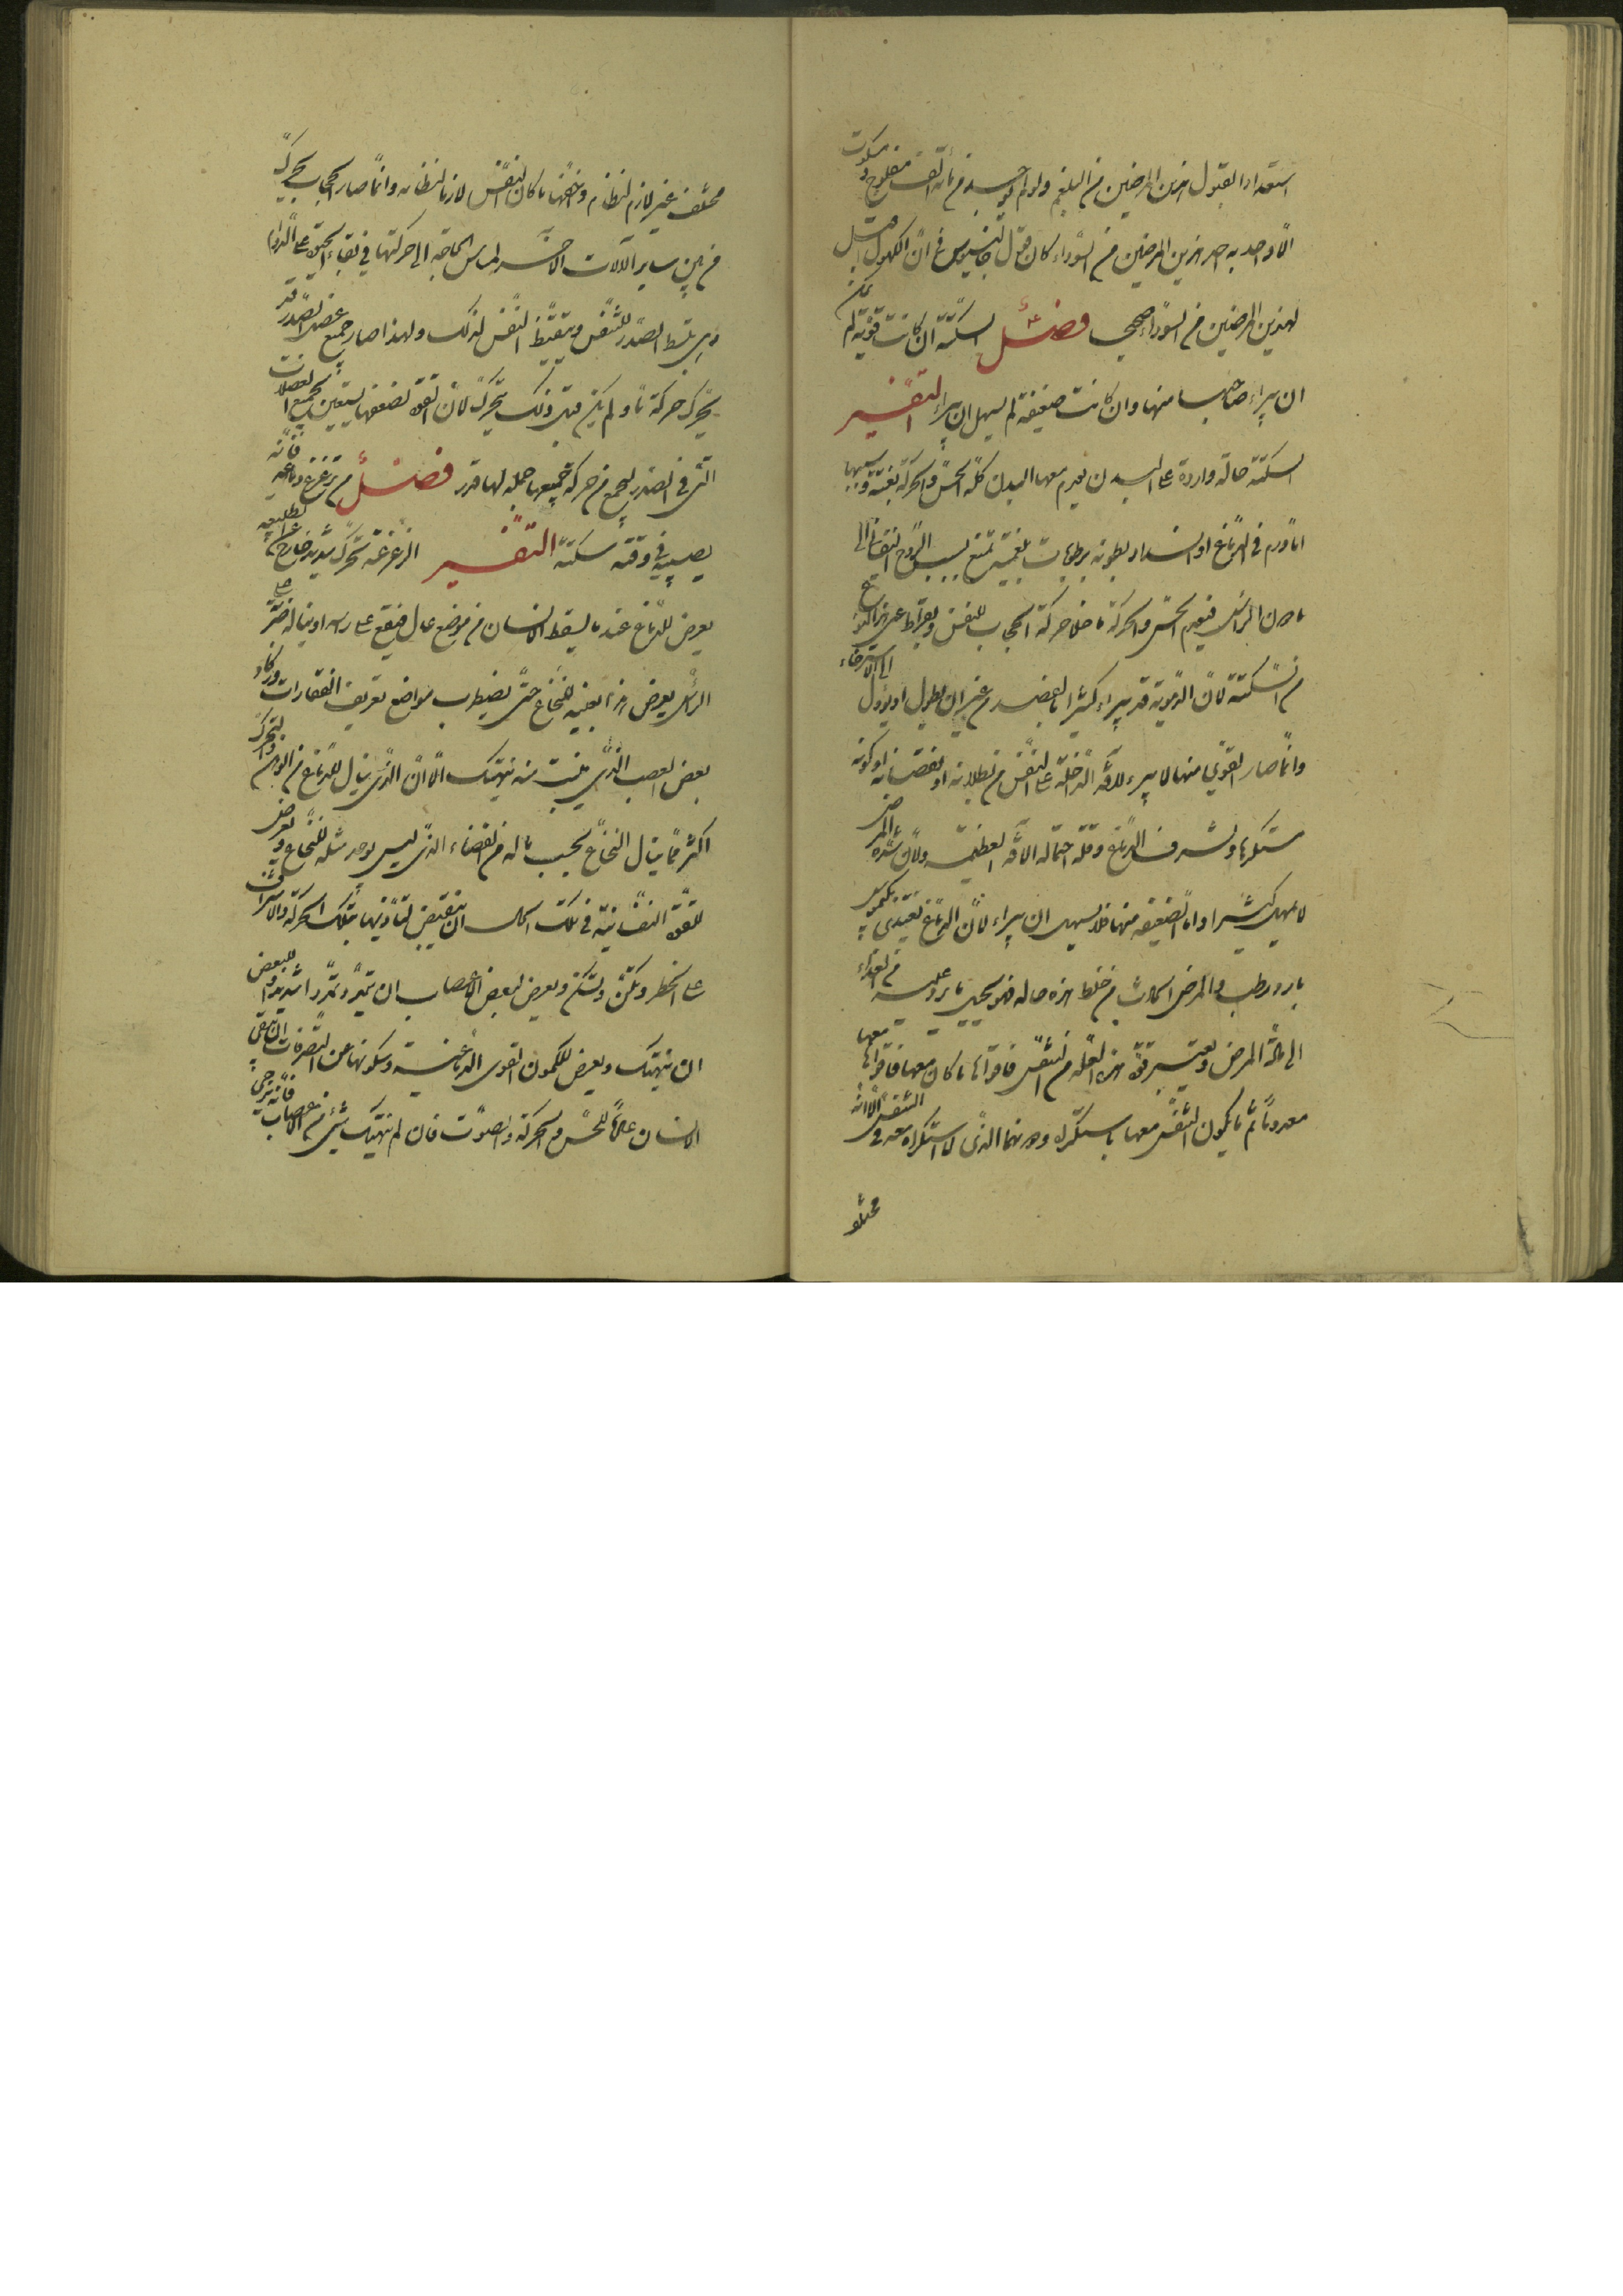 استعدادا لقبول هذين المرضين من البلغم ولو لم يوجد من مائة الف مفلوج ومسكوت
الا واحد به احد هذين المرضين من السوداء كان قول جالينوس في ان الكهول
لهذين المرضين من السوداء صحيحا فصل السكتة ان كانت قوية لم يمكن
ان يبراء صاحبها منها وان كانت ضعيفة لم يسهل ان يبراء التفسير
السكتة حالة واردة على البدن يعدم معها البدن كله الحس والحركة بغتة وسببها
اما ورم في الدماغ او انسداد بطونه برطوبات بلغمية تمنع الروح النفساني
ما دون الراس فيعدم الحس والحركة ما خلا حركة الحجاب للتنفس وبقراط
من السكتة لان الدموية قد يبراء كثيرا ما بعضه من غير ان يطول او يؤول الى الاسترخاء
وانما صار القوي منها لا يبرء للآفة الداخلة على التنفس من بطلانه او نقصانه او كونه
مستكرها ولشرف الدماغ وقلة احتماله الآفة العظيمة ولان شدة المرض
لا يمهل كثيرا واما الضعيفة منها فلا يسهل ان يبراء لان الدماغ يغتذي
بارد رطب والمرض الحادث من خلط هذه حاله فهو يحيل ما يرد عليه من الغذاء
الى مادة المرض ويعتبر قوة هذه العلة من التنفس فاقواها ما كان معها
معدوما ثم ما يكون التنفس معها باستكراه وبعدهما الذي لا استكراه معه في التنفس الا انه
مختلف
مختلف غير لازم لنظام واضعفها ما كان التنفس لازما لنظامه وانما صار الحجاب يتحرك
من بين ساير الآلات الاخر لمساس الحاجة الى حركتها في بقاء الحيوة على الدوام
ينبسط الصدر للتنفس ويتقبض التنفس لذلك ولهذا صار جميع عضل الصدر قد
يتحرك حركة ما ولم يكن قبل ذلك يتحرك لان القوة لضعفها يستعين بجميع العضلات
التي في الصدر ليجمع من حركة جميعها جملة لها قدر فصل من تزعزع دماغه فانه
يصيبه في وقته سكتة التفسير الزعزعة تحرك شديد خارج عن الطبيعة
يعرض للدماغ عند ما يسقط الانسان من موضع عال فيقع على راسه او يناله ضربة على
الراس يعرض هذا بعينه للنخاع حتى يضطرب مواضع تعريف الفقارات
بعض العصب الذي ينبت منه ينهتك الا ان الذي ينال الدماغ من الوهن والتحرك
اكثر مما ينال النخاع بحسب ماله من الفضاء الذي ليس يوجد مثله للنخاع ويعرض
للقوة النفسانية في تلك الحال ان تنقبض لتأذيها بتلك الحركة والاشراف
على الخطر وتكمن وتسكن ويعرض لبعض الاعصاب ان تتمدد تمددا شديدا ولبعض
ان ينهتك ويعرض لكمون القوى الدماغية وسكونها عن التصرفات ان يبقى
الانسان عادما للحس والحركة والصوت فان لم ينهتك شيء من الاعصاب فانه يرجى